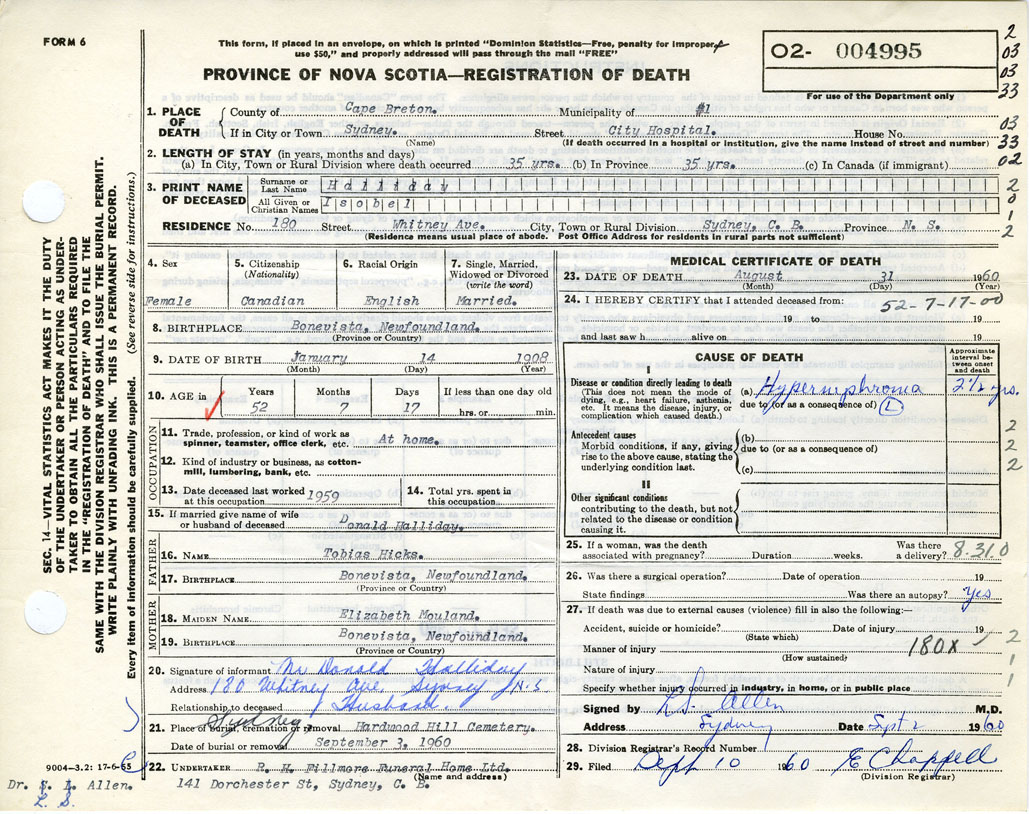 FORM 6
This form, if placed in an envelope, on which is printed "Dominion Statistics—Free, penalty for improper
use $50," and properly addressed will pass through the mail "FREE"
PROVINCE OF NOVA SCOTIA—REGISTRATION OF DEATH
O2- 004995
For use of the Department only
2
03
03
33
03
33
02
2
0
1
2
SEC. 14—VITAL STATISTICS ACT MAKES IT THE DUTY
OF THE UNDERTAKER OR PERSON ACTING AS UNDER-
TAKER TO OBTAIN ALL THE PARTICULARS REQUIRED
IN THE "REGISTRATION OF DEATH" AND TO FILE THE
SAME WITH THE DIVISION REGISTRAR WHO SHALL ISSUE THE BURIAL PERMIT.
WRITE PLAINLY WITH UNFADING INK. THIS IS A PERMANENT RECORD.
Every item of information should be carefully supplied. (See reverse side for instructions.)
1. PLACE OF DEATH
County of Cape Breton. Municipality of #1
If in City or Town Sydney. Street City Hospital. House No.
(Name) (If death occurred in a hospital or institution, give the name instead of street and number)
2. LENGTH OF STAY (in years, months and days)
(a) In City, Town or Rural Division where death occurred 35 yrs. (b) In Province 35 yrs. (c) In Canada (if immigrant)
3. PRINT NAME OF DECEASED
Surname or Last Name Halliday
All Given or Christian Names Isobel
RESIDENCE No. 180 Street Whitney Ave. City, Town or Rural Division Sydney, C. B. Province N. S.
(Residence means usual place of abode. Post Office Address for residents in rural parts not sufficient)
4. Sex
Female
5. Citizenship (Nationality)
Canadian
6. Racial Origin
English
7. Single, Married, Widowed or Divorced (write the word)
Married.
8. BIRTHPLACE Bonevista, Newfoundland.
(Province or Country)
9. DATE OF BIRTH January 14 1908
(Month) (Day) (Year)
10. AGE in
Years Months Days If less than one day old
52 7 17 hrs. or min.
OCCUPATION
11. Trade, profession, or kind of work as
spinner, teamster, office clerk, etc. At home.
12. Kind of industry or business, as cotton-
mill, lumbering, bank, etc.
13. Date deceased last worked at this occupation 1959
14. Total yrs. spent in this occupation
15. If married give name of wife
or husband of deceased Donald Halliday.
FATHER
16. NAME Tobias Hicks.
17. BIRTHPLACE Bonevista, Newfoundland.
(Province or Country)
MOTHER
18. MAIDEN NAME Elizabeth Mouland.
19. BIRTHPLACE Bonevista, Newfoundland.
(Province or Country)
20. Signature of informant Mr Donald Halliday
Address 180 Whitney Ave. Sydney N.S
Relationship to deceased Husband.
Sydney
21. Place of burial, cremation or removal Hardwood Hill Cemetery.
Date of burial or removal September 3, 1960
22. UNDERTAKER R. H. Fillmore Funeral Home Ltd.
(Name and address)
141 Dorchester St, Sydney, C. B.
9004—3.2: 17-6-53
Dr. S. L. Allen.
L. S.
MEDICAL CERTIFICATE OF DEATH
23. DATE OF DEATH August 31 1960
(Month) (Day) (Year)
24. I HEREBY CERTIFY that I attended deceased from:
52-7-17-00
19 to 19
and last saw h alive on 19
CAUSE OF DEATH
Approximate interval between onset and death
I
Disease or condition directly leading to death
(This does not mean the mode of dying, e.g., heart failure, asthenia, etc. It means the disease, injury, or complication which caused death.)
(a) Hypernephroma 2½ yrs.
due to (or as a consequence of) L
Antecedent causes
Morbid conditions, if any, giving rise to the above cause, stating the underlying condition last.
(b)
due to (or as a consequence of)
(c)
2
2
2
II
Other significant conditions
contributing to the death, but not related to the disease or condition causing it.
25. If a woman, was the death associated with pregnancy? Duration weeks. Was there a delivery? 8.310
26. Was there a surgical operation? Date of operation 19
State findings Was there an autopsy? Yes
27. If death was due to external causes (violence) fill in also the following:—
Accident, suicide or homicide? Date of injury 19
(State which)
Manner of injury 180X
(How sustained)
2
1
1
Nature of injury
Specify whether injury occurred in industry, in home, or in public place
Signed by L.S. Allen M.D.
Address Sydney Date Sept 2 1960
28. Division Registrar's Record Number
29. Filed Sept 10 1960 E Chappell
(Division Registrar)